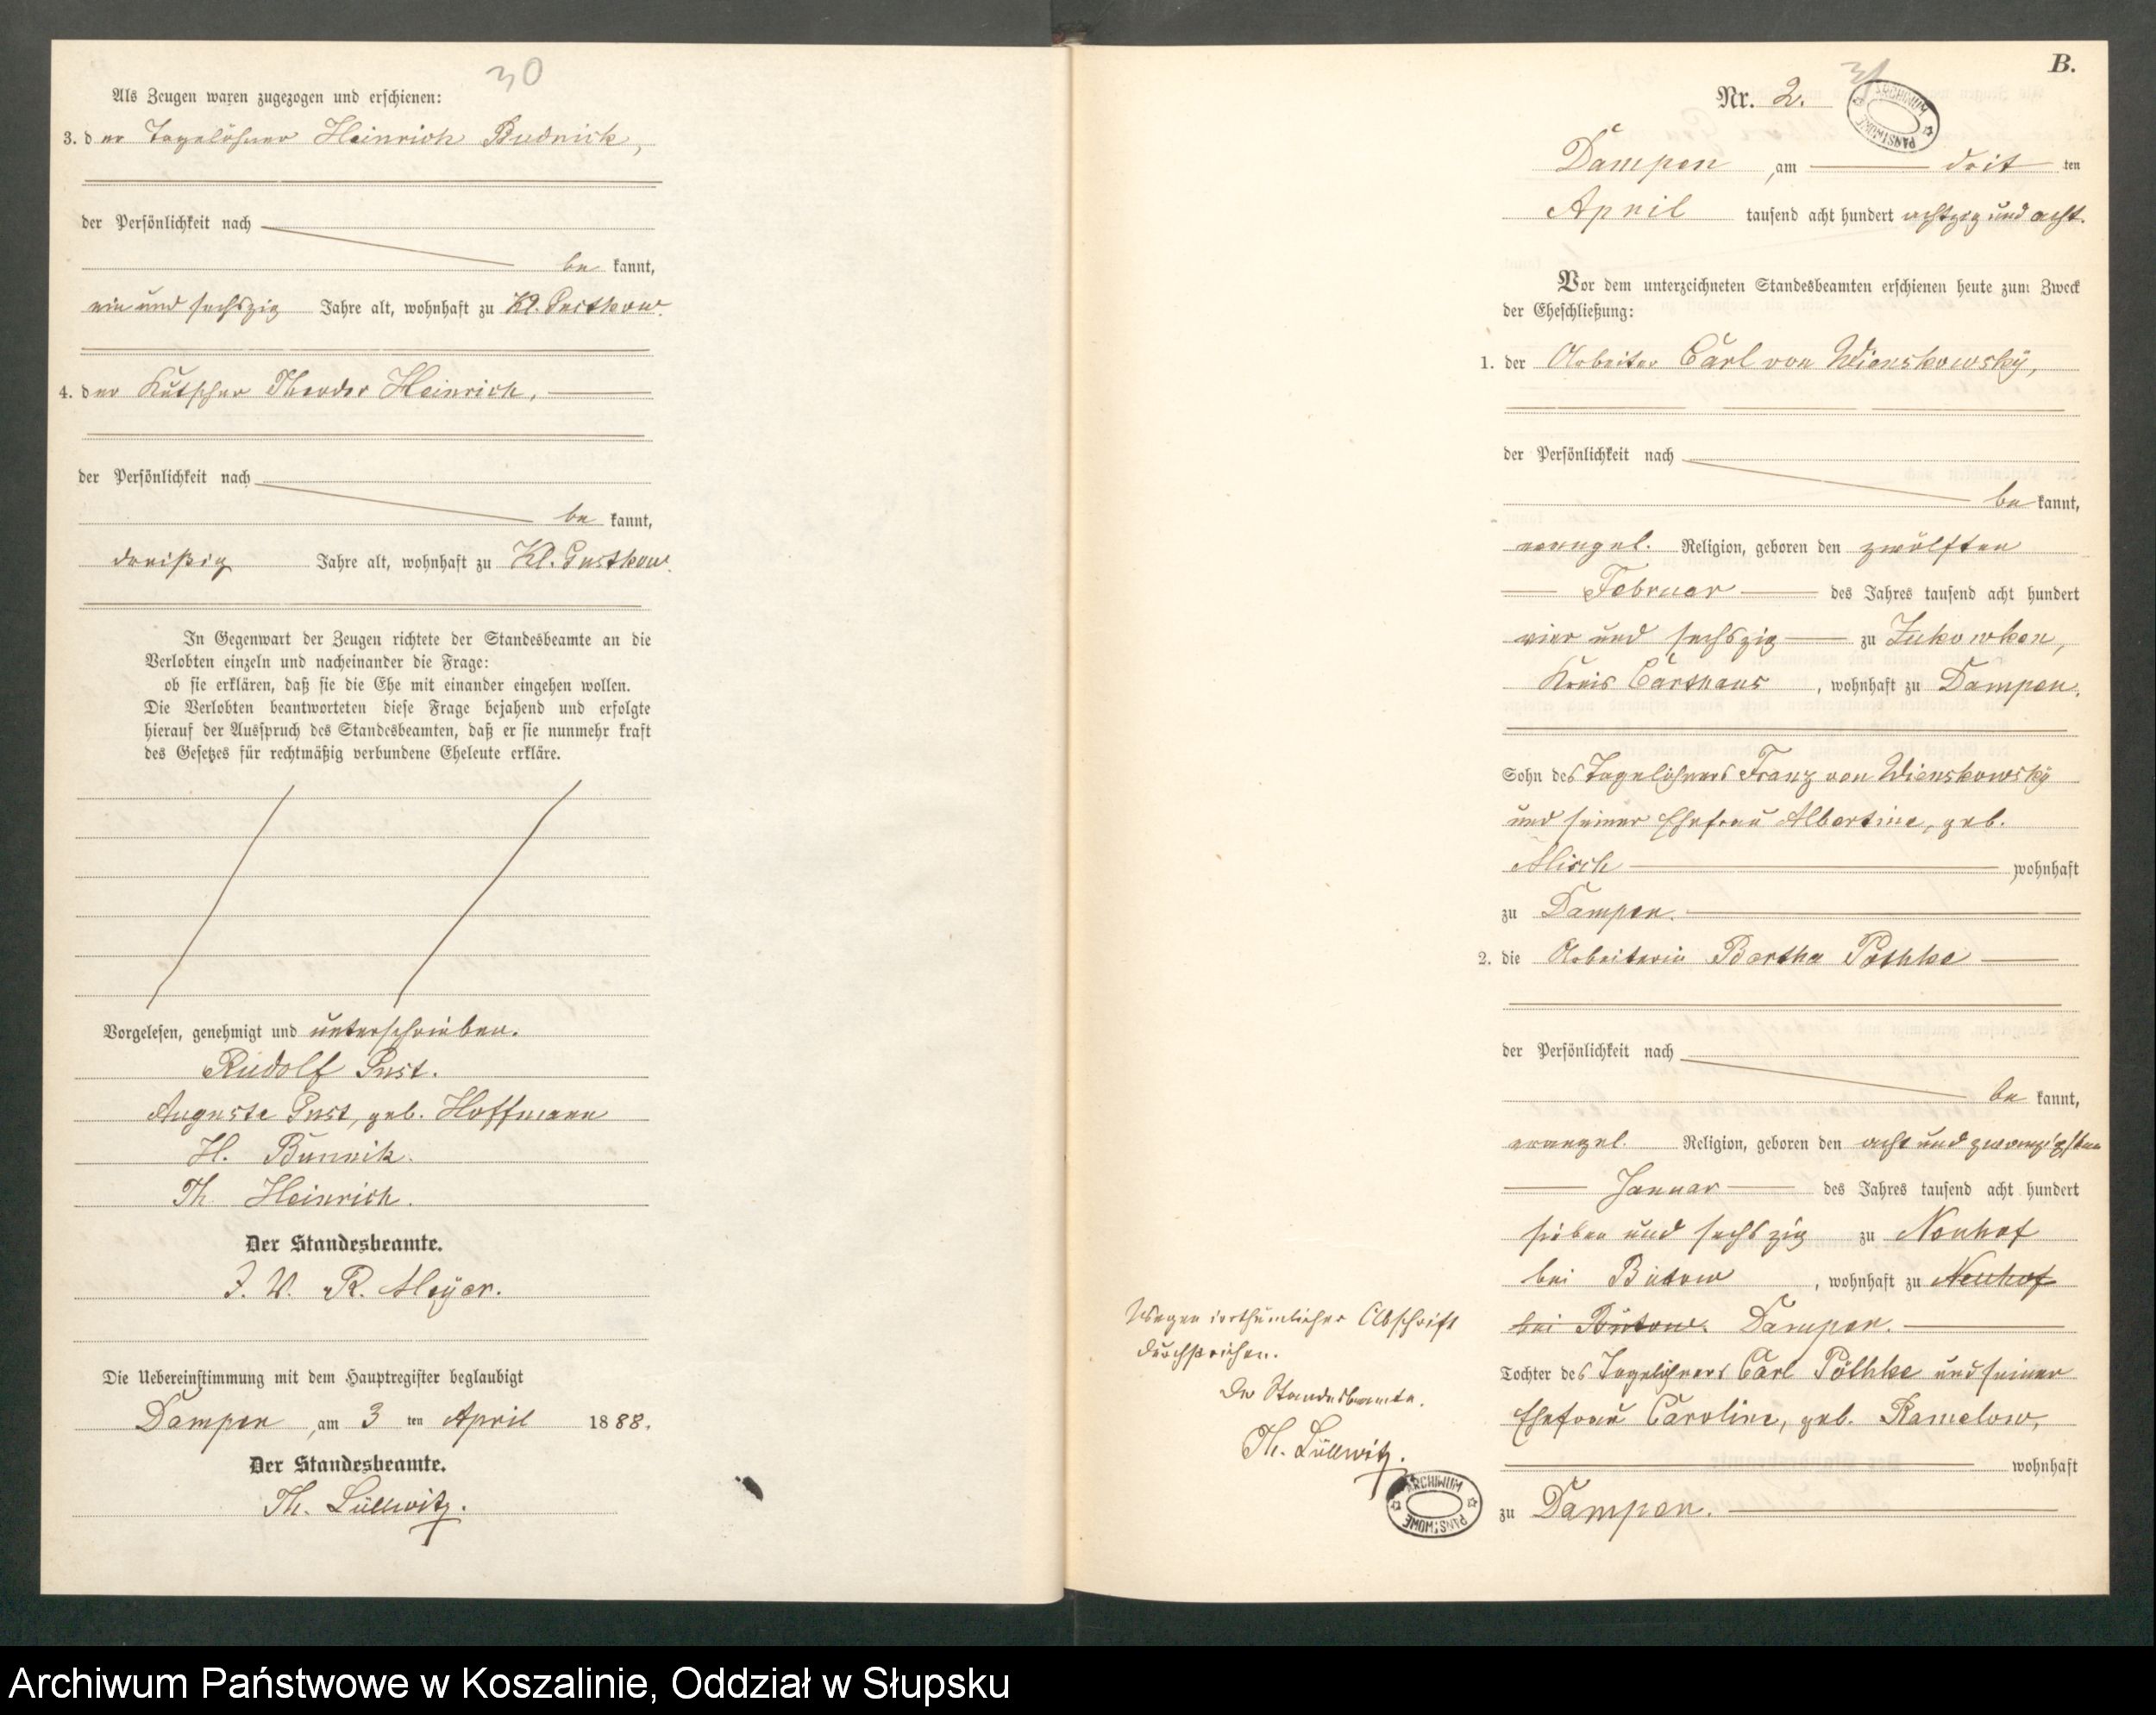 30
Als Zeugen waren zugezogen und erschienen:
3. der Tagelöhner Heinrich Budnick,
der Persönlichkeit nach
be kannt,
ein und sechszig Jahre alt, wohnhaft zu Kl. Gustkow.
4. der Kutscher Theodor Heinrich,
der Persönlichkeit nach
be kannt,
dreißig Jahre alt, wohnhaft zu Kl. Gustkow.
In Gegenwart der Zeugen richtete der Standesbeamte an die
Verlobten einzeln und nacheinander die Frage:
ob sie erklären, daß sie die Ehe mit einander eingehen wollen.
Die Verlobten beantworteten diese Frage bejahend und erfolgte
hierauf der Ausspruch des Standesbeamten, daß er sie nunmehr kraft
des Gesetzes für rechtmäßig verbundene Eheleute erkläre.
Vorgelesen, genehmigt und unterschrieben.
Rudolf Pust.
Auguste Pust, geb. Hoffmann
H. Bunnik.
Th. Heinrich.
Der Standesbeamte.
J. V. R. Meyer.
Die Uebereinstimmung mit dem Hauptregister beglaubigt
Dampen, am 3 ten April 1888.
Der Standesbeamte.
Th. Lüllwitz.
B.
31
Nr. 2.
ARCHIWUM PAŃSTWOWE
Dampen, am drit ten
April tausend acht hundert achtzig und acht.
Vor dem unterzeichneten Standesbeamten erschienen heute zum Zweck
der Eheschließung:
1. der Arbeiter Carl von Wienskowsky,
der Persönlichkeit nach
be kannt,
evangel. Religion, geboren den zwölften
Februar des Jahres tausend acht hundert
vier und sechszig zu Zukowken,
Kreis Carthaus, wohnhaft zu Dampen.
Sohn des Tagelöhners Franz von Wienskowsky
und seiner Ehefrau Albertine, geb.
Misch wohnhaft
zu Dampen.
2. die Arbeiterin Bertha Pöthke
der Persönlichkeit nach
be kannt,
evangel. Religion, geboren den acht und zwanzigsten
Januar des Jahres tausend acht hundert
sieben und sechszig zu Neuhof
bei Bütow, wohnhaft zu Neuhof
bei Bütow. Dampen.
Tochter des Tagelöhners Carl Pöthke und seiner
Ehefrau Caroline, geb. Ramelow,
wohnhaft
zu Dampen.
Wegen irrthümlicher Abschrift
durchstrichen.
Der Standesbeamte.
Th. Lüllwitz.
ARCHIWUM PAŃSTWOWE
Archiwum Państwowe w Koszalinie, Oddział w Słupsku